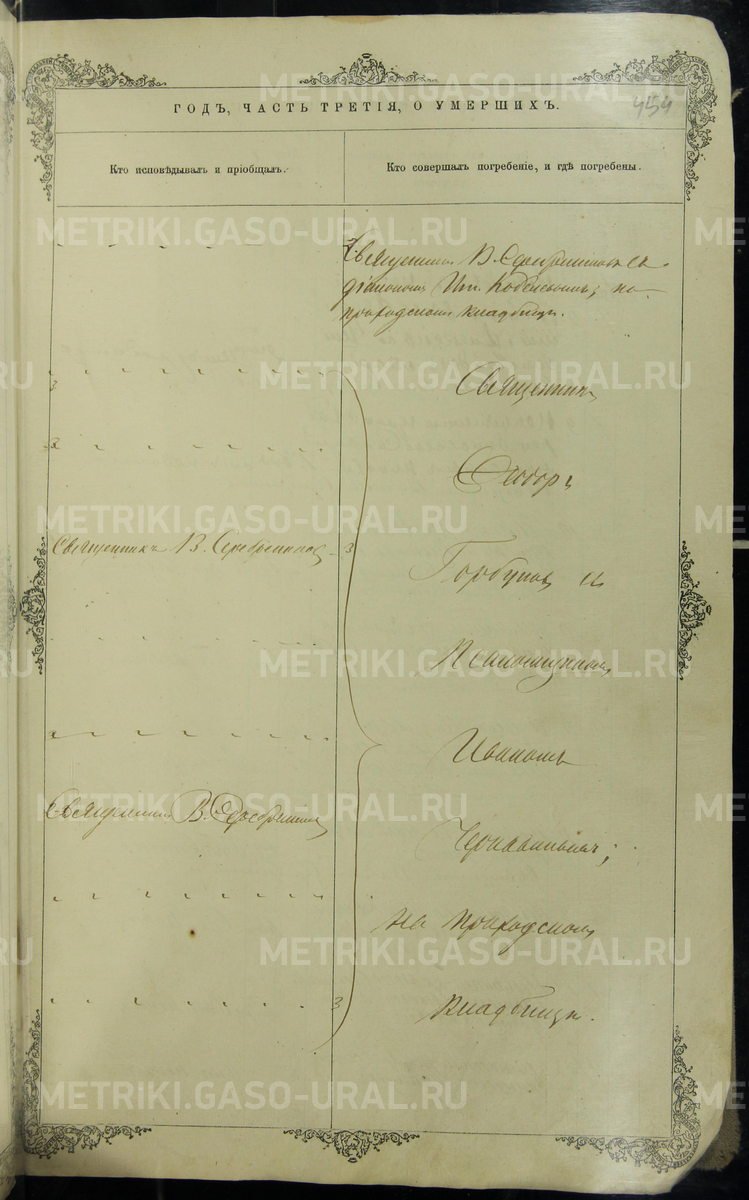 METRIKI.GASO-URAL.RU
ГОДЪ, ЧАСТЬ ТРЕТІЯ, О УМЕРШИХЪ.
454
Кто исповѣдывалъ и пріобщалъ.
Кто совершалъ погребеніе, и гдѣ погребены.
Священникъ В. Серебренниковъ съ
діакономъ Ип. на
приходскомъ кладбищѣ.
Священникъ
Ѳеодоръ
Священникъ В. Серебренниковъ
Горбуновъ съ
Псаломщикомъ
Иваномъ
Священникъ В. Серебренниковъ
на приходскомъ
кладбищѣ.